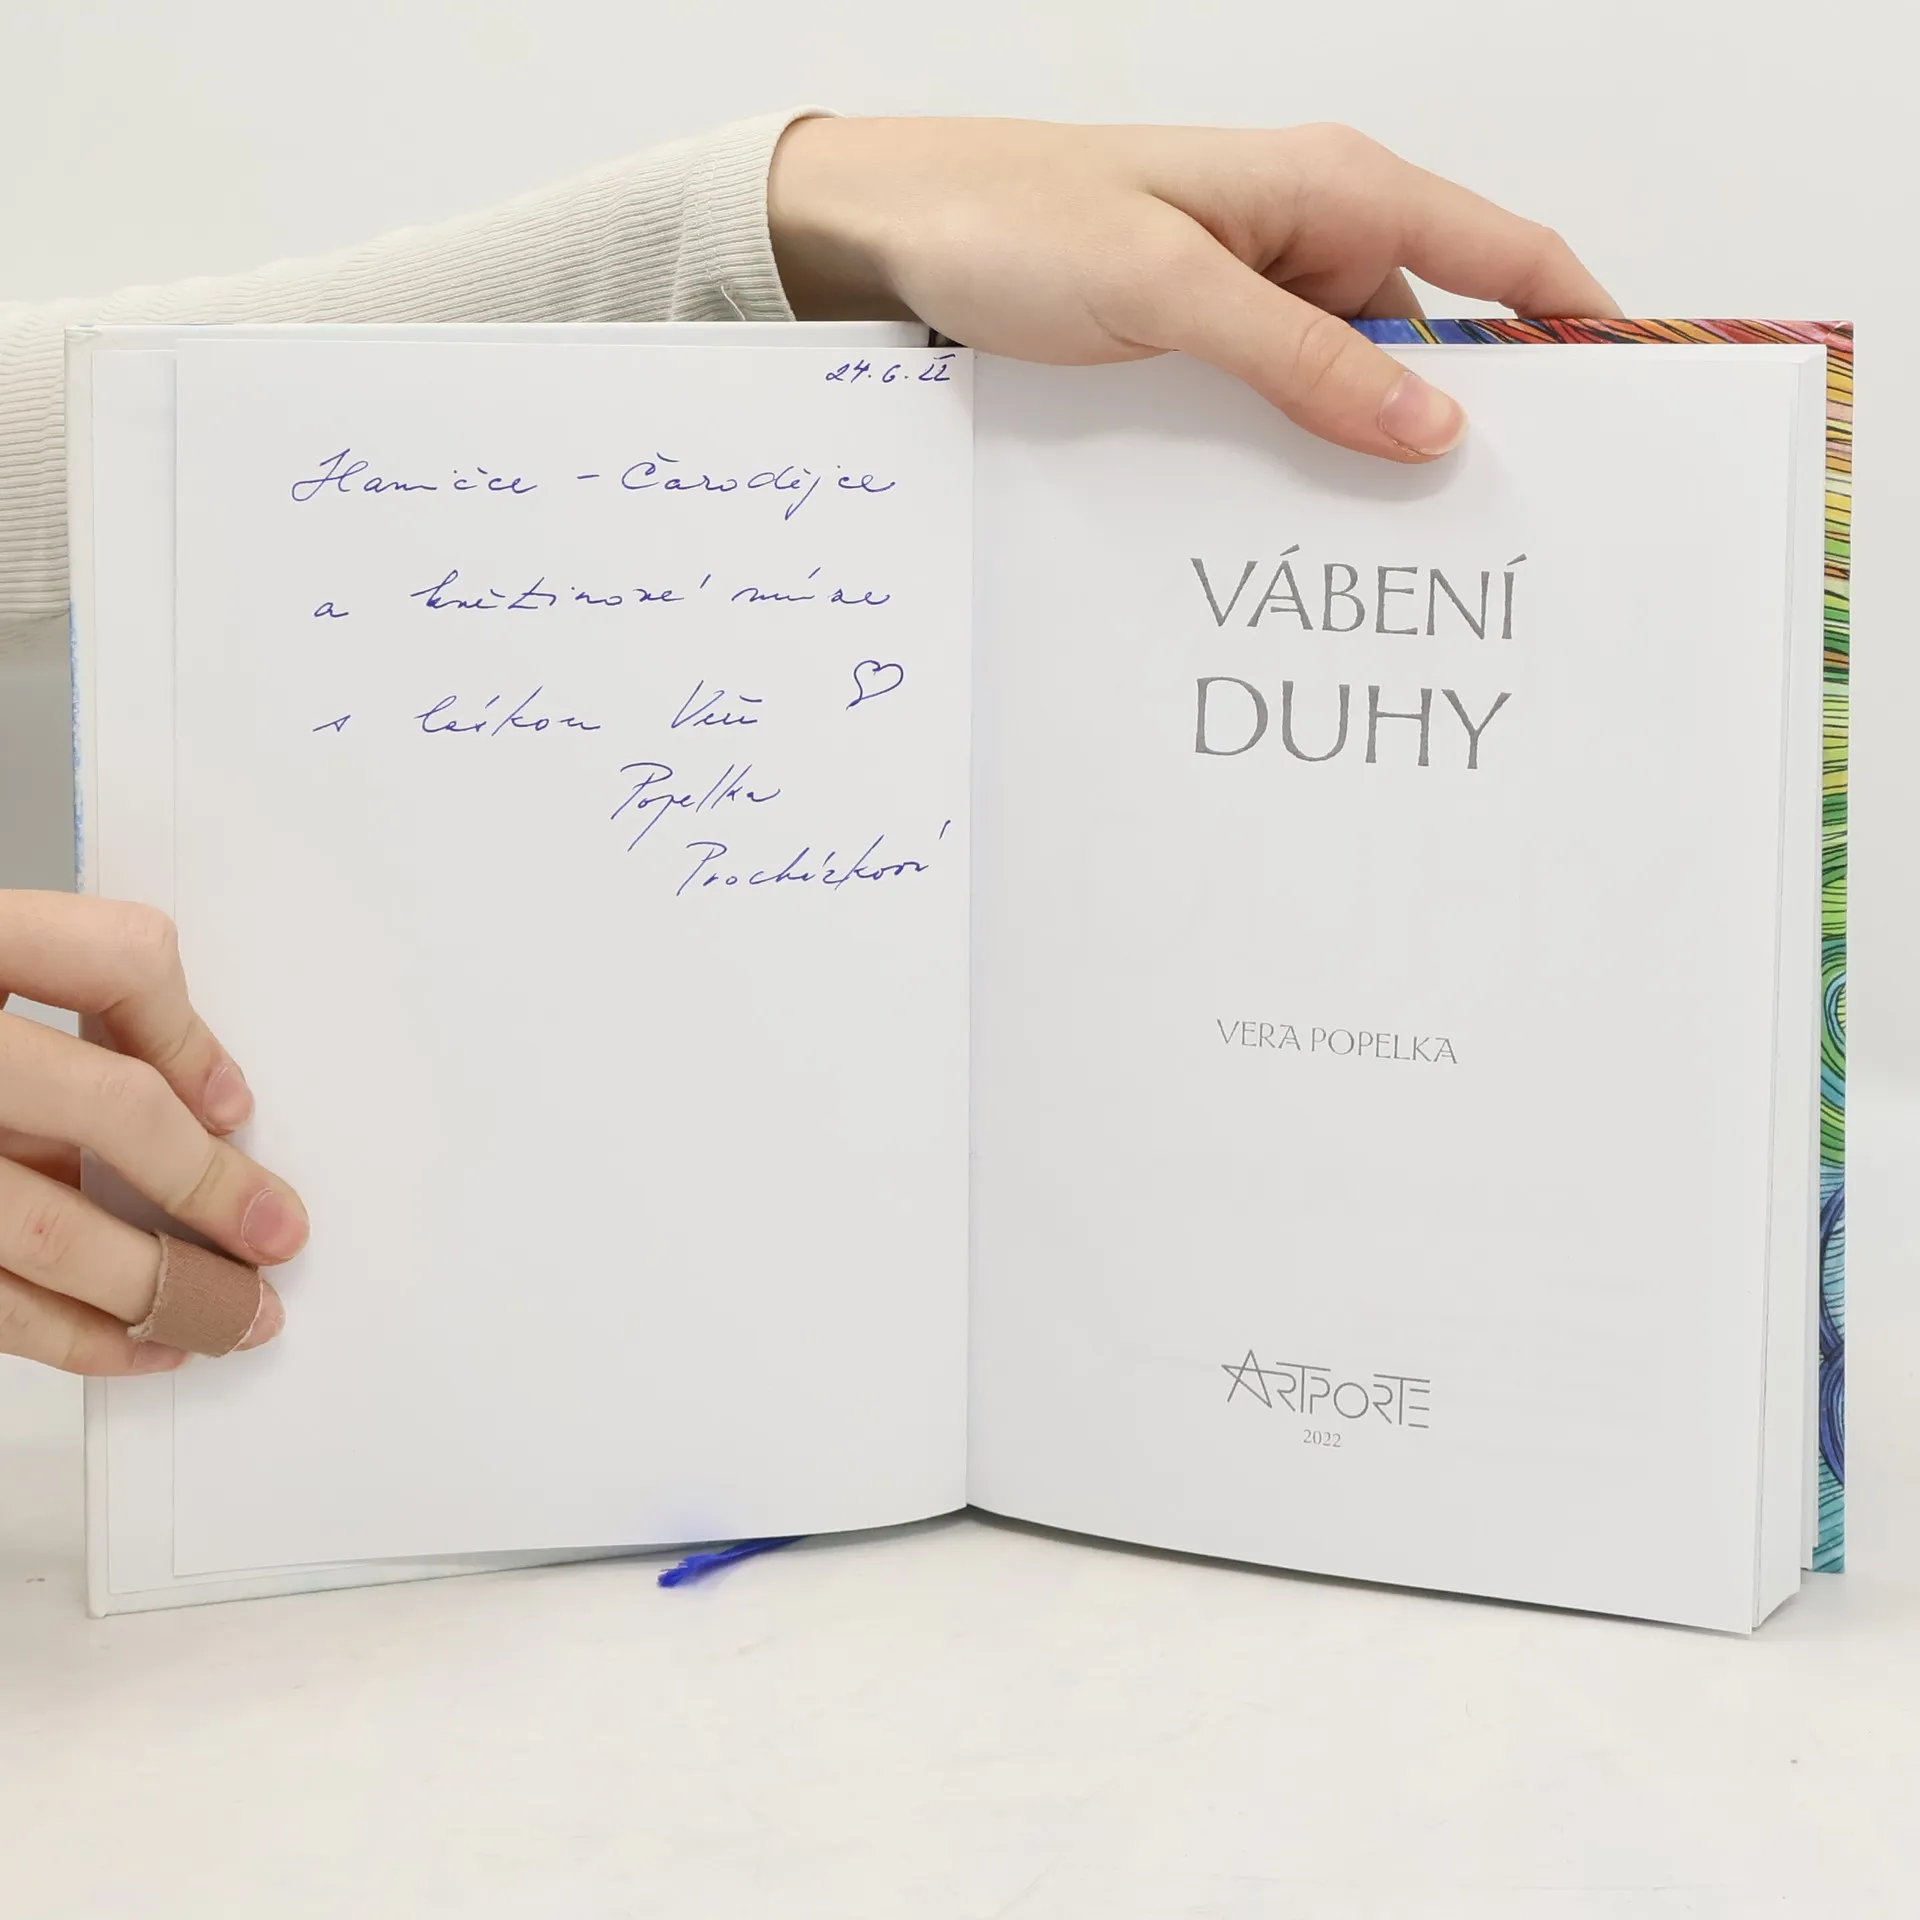 24. 6. 22
Haničce - Čarodějce
a květinové múze
s láskou Věra
Popelka
Procházková
VÁBENÍ
DUHY
VERA POPELKA
ARTPORTE
2022